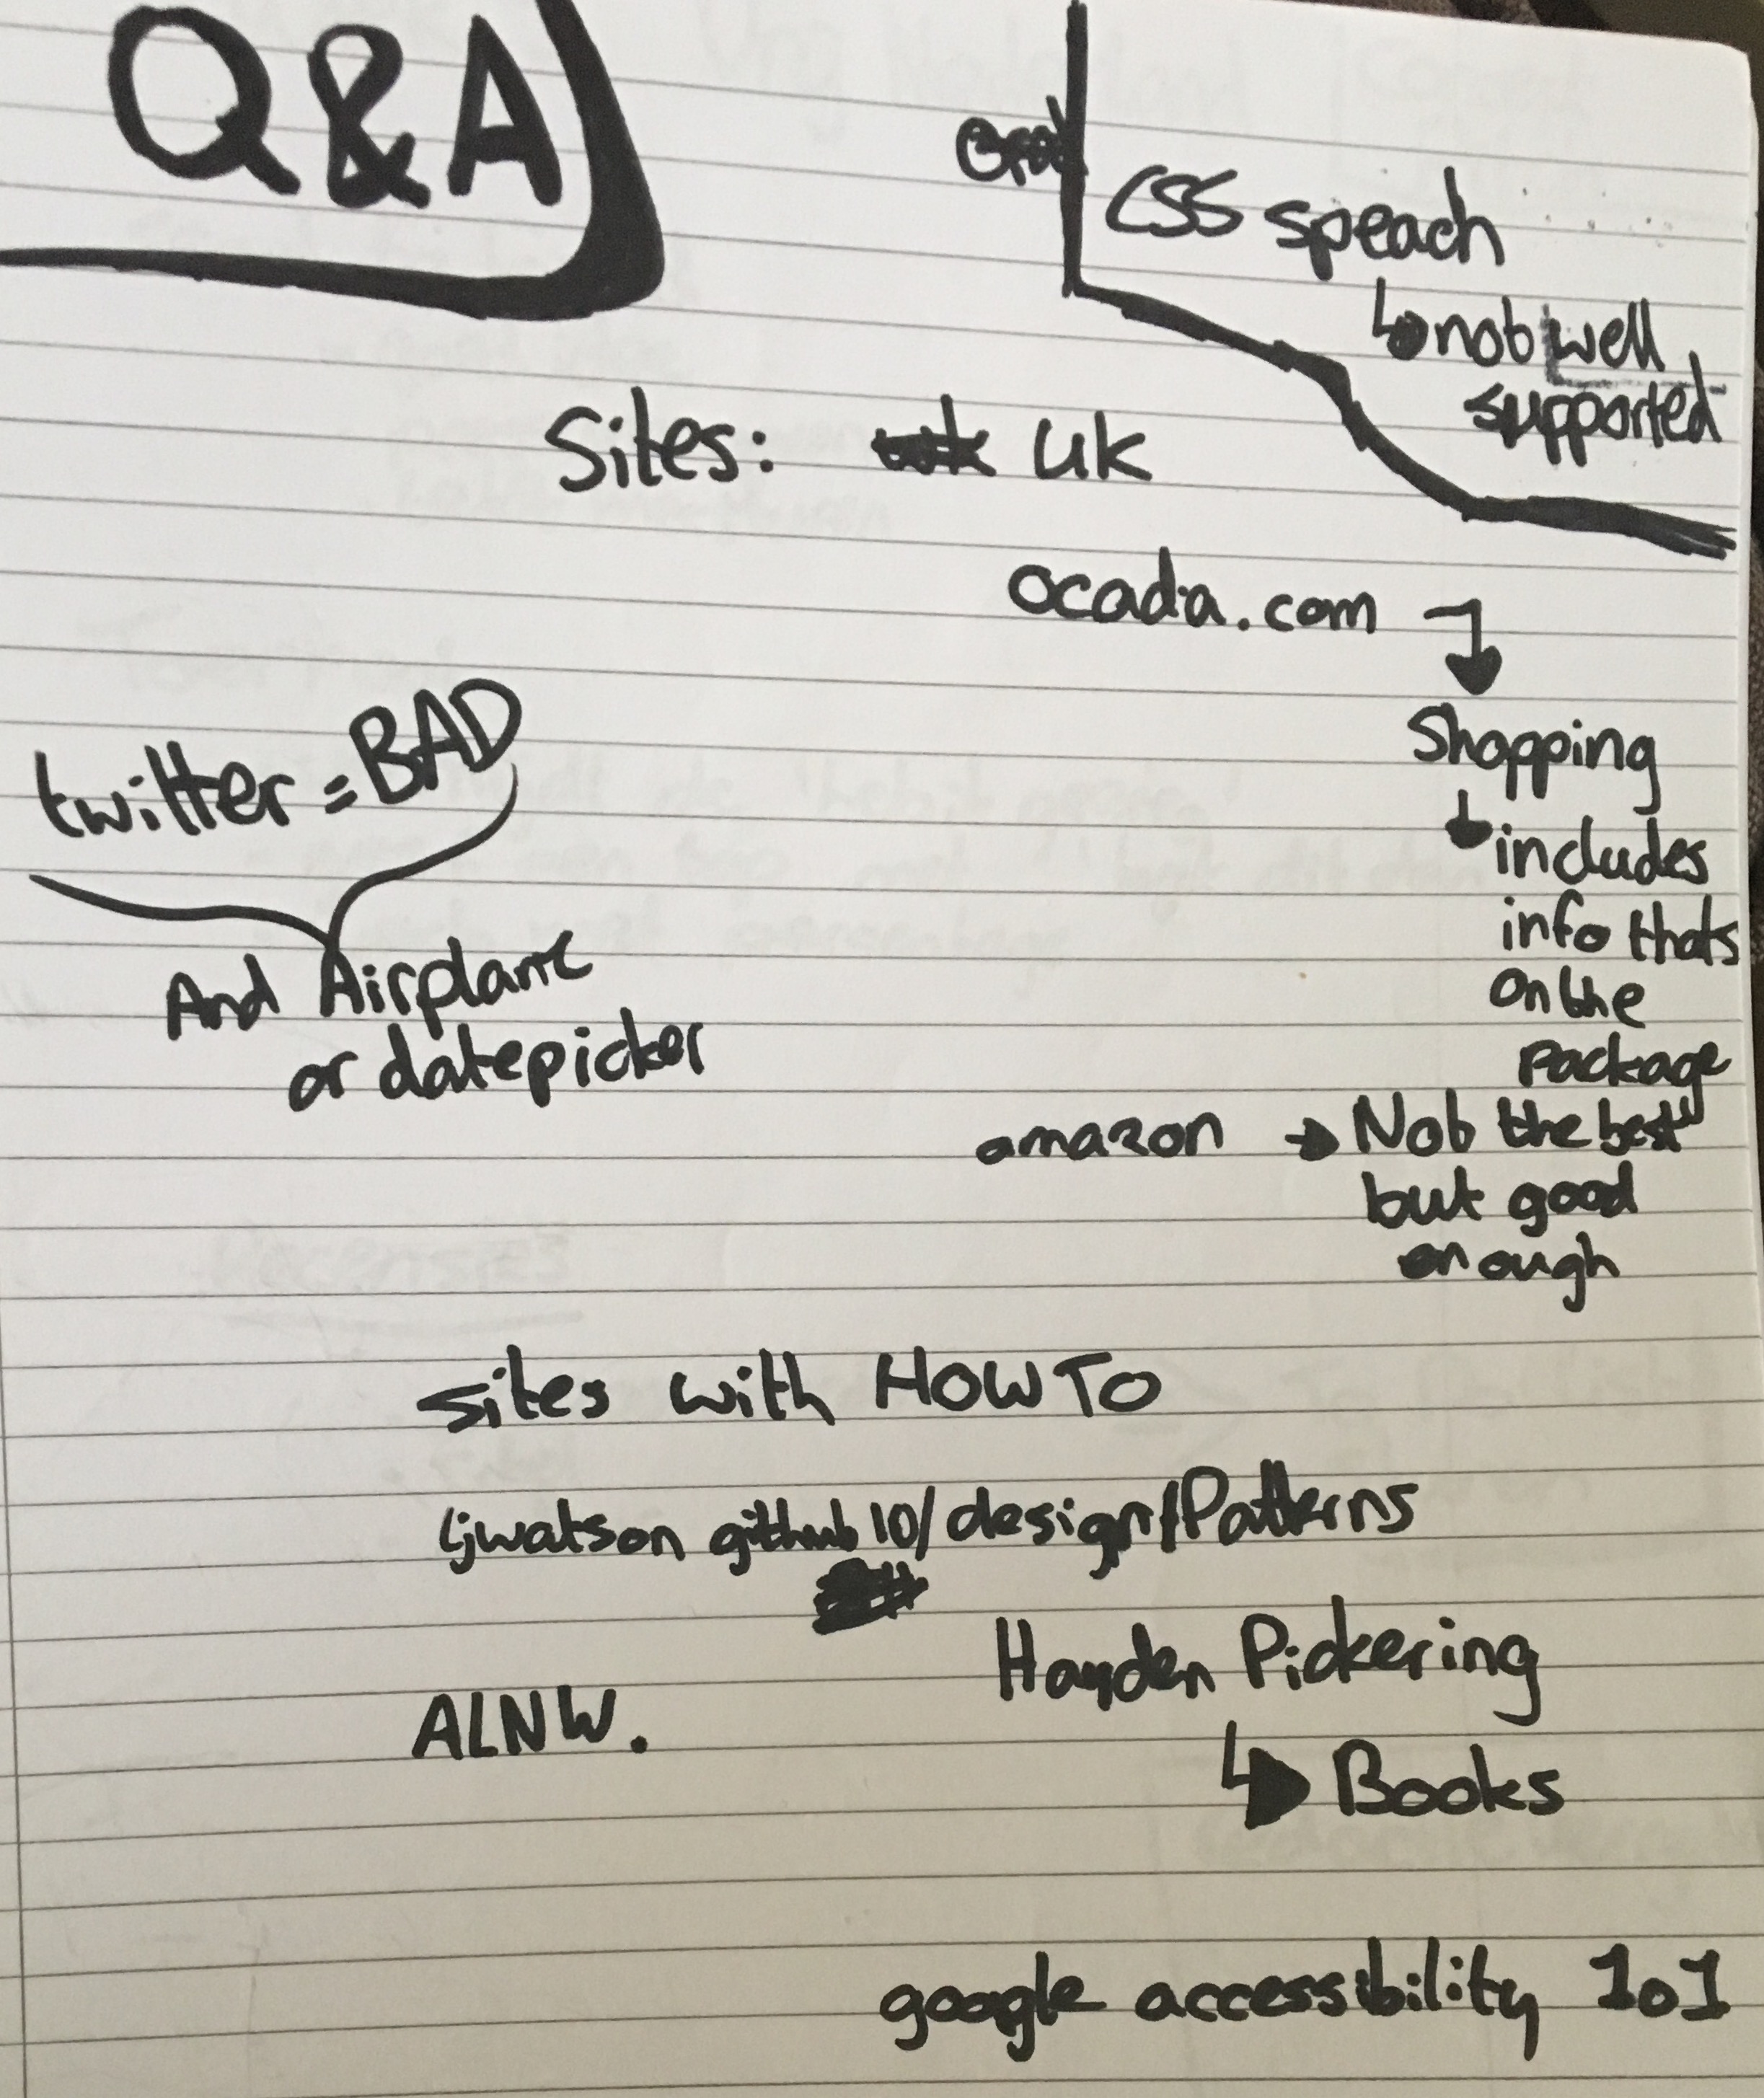 Q&A
CSS speach
not well
supported
Sites: uk
ocada.com
Shopping
includes
info thats
on the
package
twitter = BAD
And Airplane
or datepicker
amazon → Not the best
but good
enough
sites with HOW TO
ljwatson github 10/design/Patterns
Hayden Pickering
Books
ALNW.
google accessibility 101